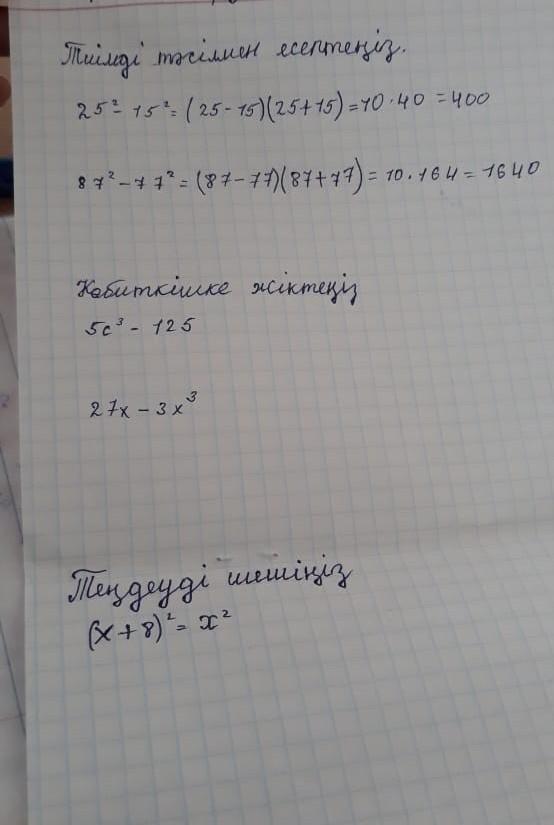 Тиімді тәсілмен есептеңіз.
25² - 15² = (25-15)(25+15) = 10·40 = 400
87² - 77² = (87-77)(87+77) = 10·164 = 1640
Көбиткішке жіктеңіз
5c³ - 125
27x - 3x³
Теңдеуді шешіңіз
(x+8)² = x²